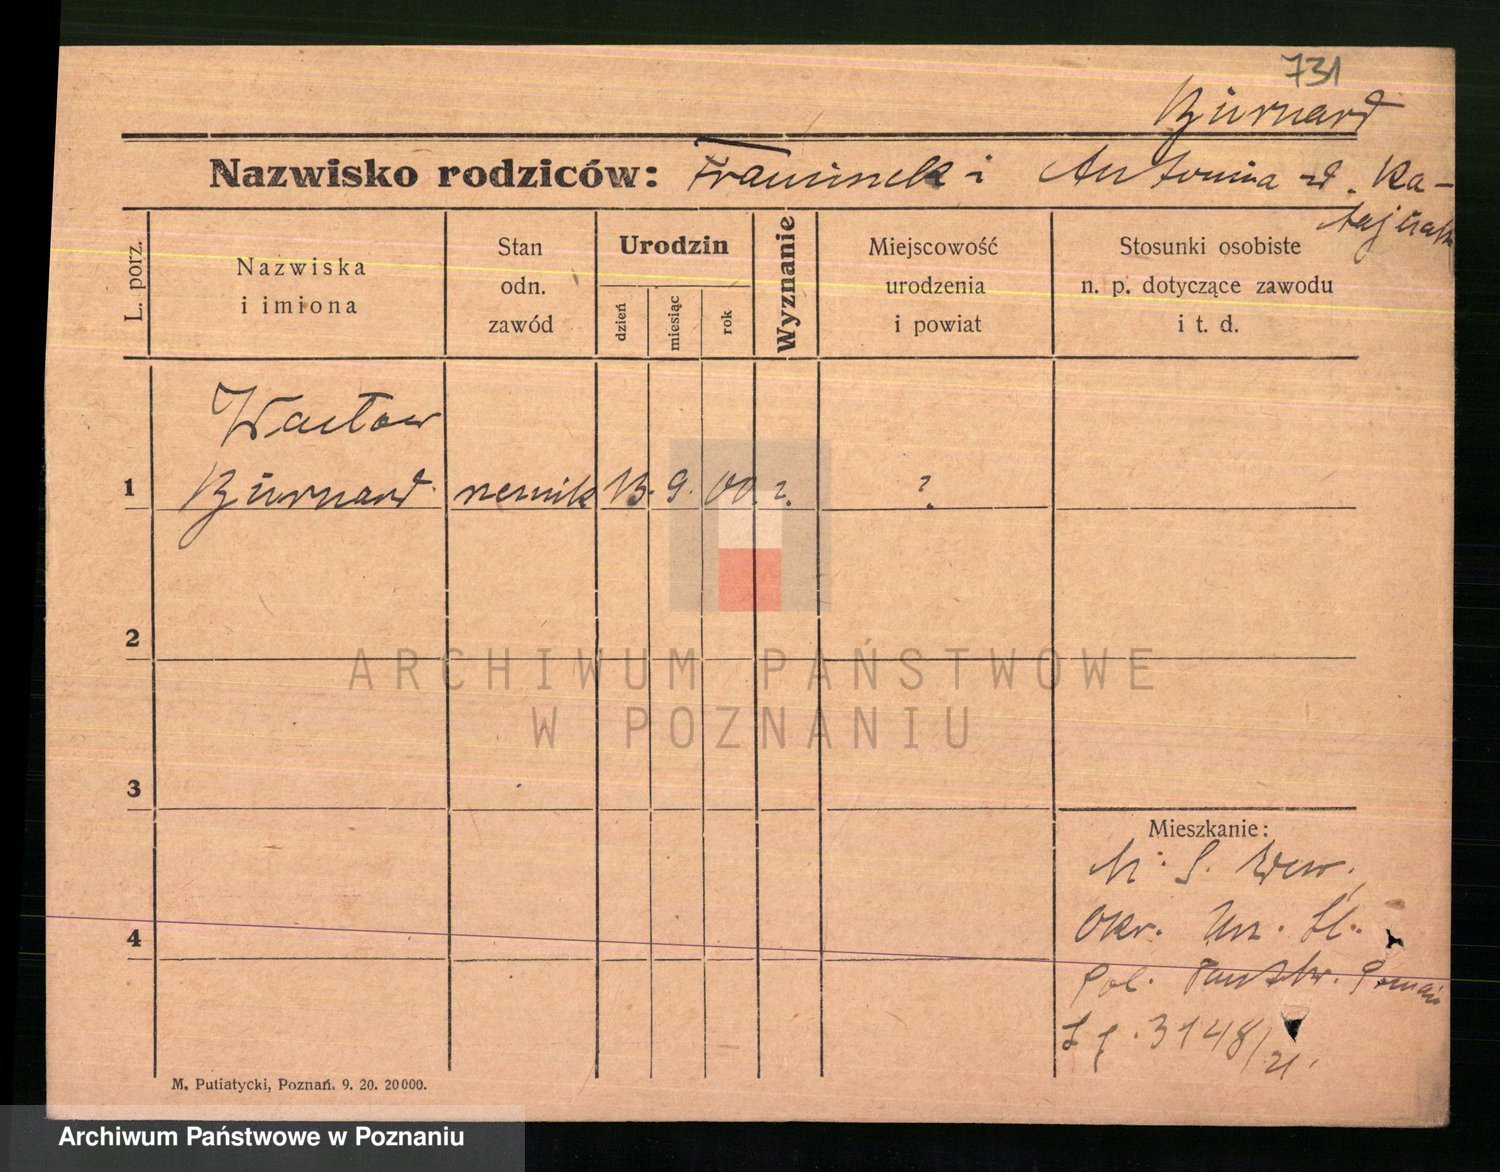 731
Burnard
Nazwisko rodziców: Franciszek i Antonina zd. Ka-
L. porz.
Nazwiska
i imiona
Stan
odn.
zawód
Urodzin
dzień
miesiąc
rok
Wyznanie
Miejscowość
urodzenia
i powiat
Stosunki osobiste
n. p. dotyczące zawodu
i t. d.
Wacław
1 Burnard 13. 9. 00 ? ?
2
3
4
Mieszkanie:
M. S. Wew.
Okr. Urz. Śl.
Pol. Państw. Poznań
3148/21.
M. Putiatycki, Poznań. 9. 20. 20000.
ARCHIWUM PAŃSTWOWE
W POZNANIU
Archiwum Państwowe w Poznaniu